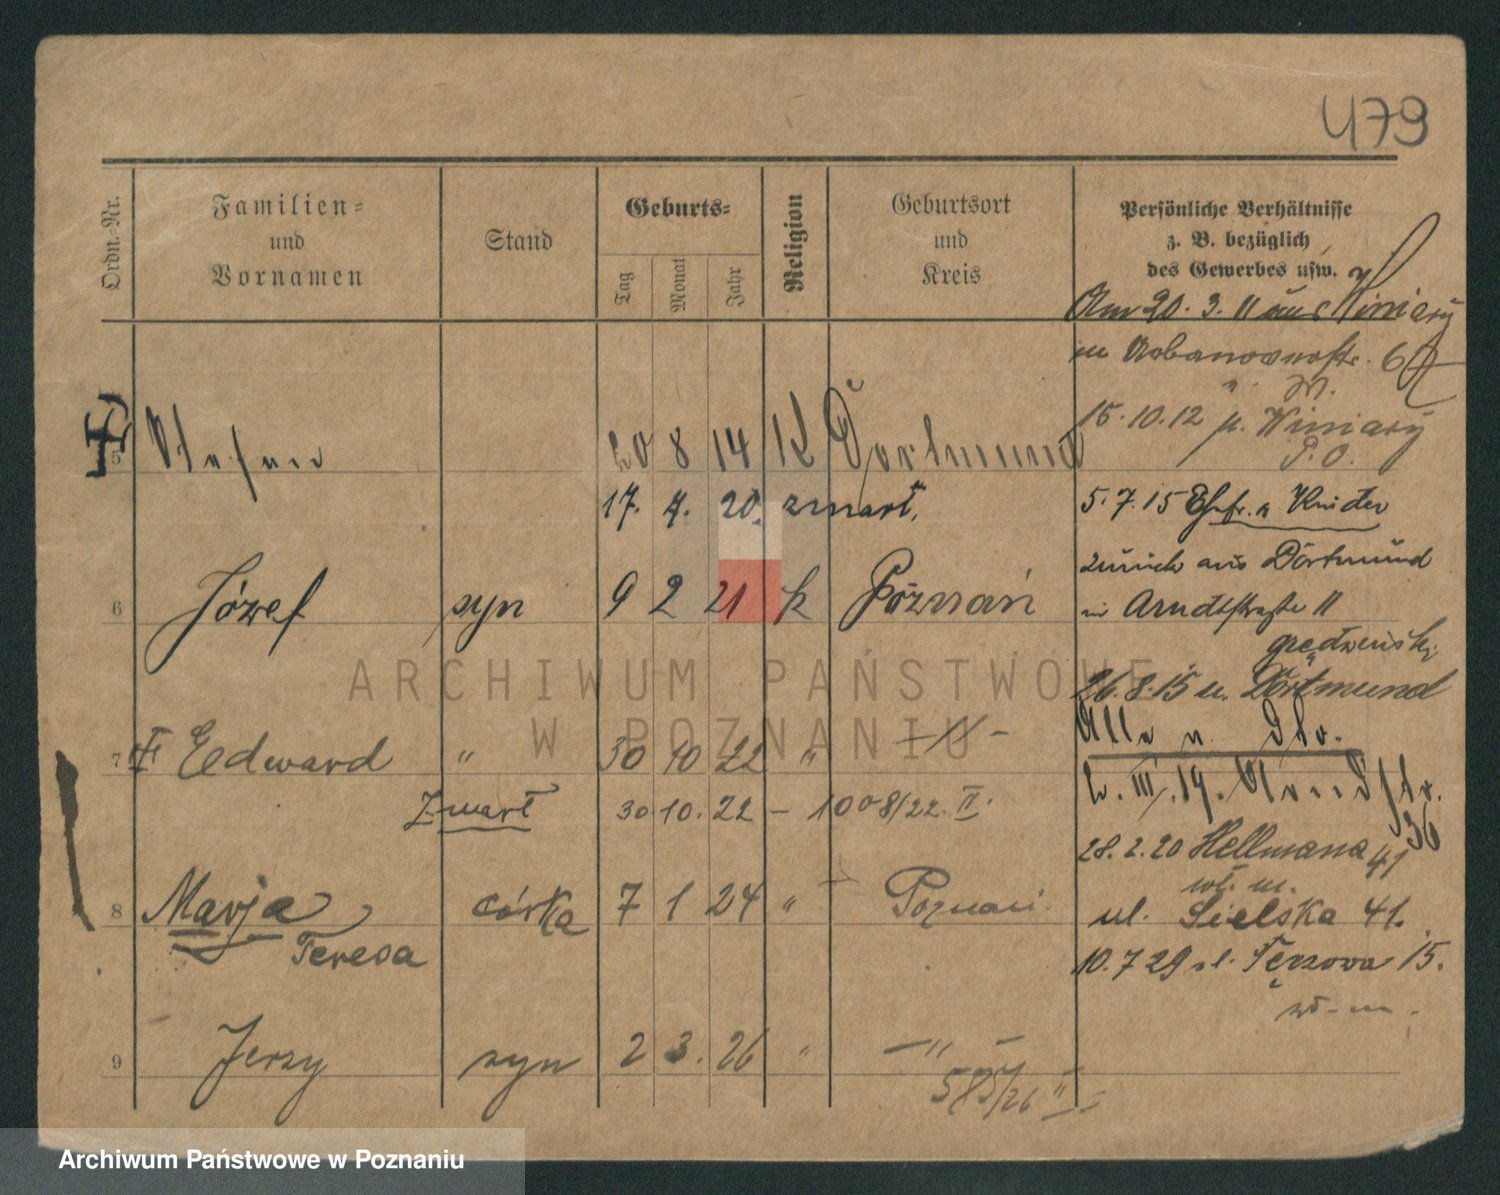 479
Ordn.-Nr.
Familien-
und
Vornamen
Stand
Geburts-
Tag
Monat
Jahr
Religion
Geburtsort
und
Kreis
Persönliche Verhältnisse
z. B. bezüglich
des Gewerbes usw.
Am 20. 3. 11 aus Winiary
in 6
15.10.12 n. Winiary
P.O.
5 Stefan 20 8 14 K Dortmund
17. 4. 20. zmarł,
5.7.15 Ehefr. u Kinder
zurück aus Dortmund
6 Józef syn 9 2 21 k Poznań
in Arndtstraße 11
26.8.15 n. Dortmund
7 Edward " 30 10 22 " -"-
Zmarł 30.10.22 – 1008/22. II.
Alle n. Do.
2. III. 19. Arndtstr.
36
28.2.20 Hellmana 41
wł. m.
8 Marja córka 7 1 24 " Poznań
Teresa
ul. Sielska 41.
10.7 29 ul. 15.
wł. m.
9 Jerzy syn 2 3. 26 " -"-
585/26 II
ARCHIWUM PAŃSTWOWE
W POZNANIU
Archiwum Państwowe w Poznaniu